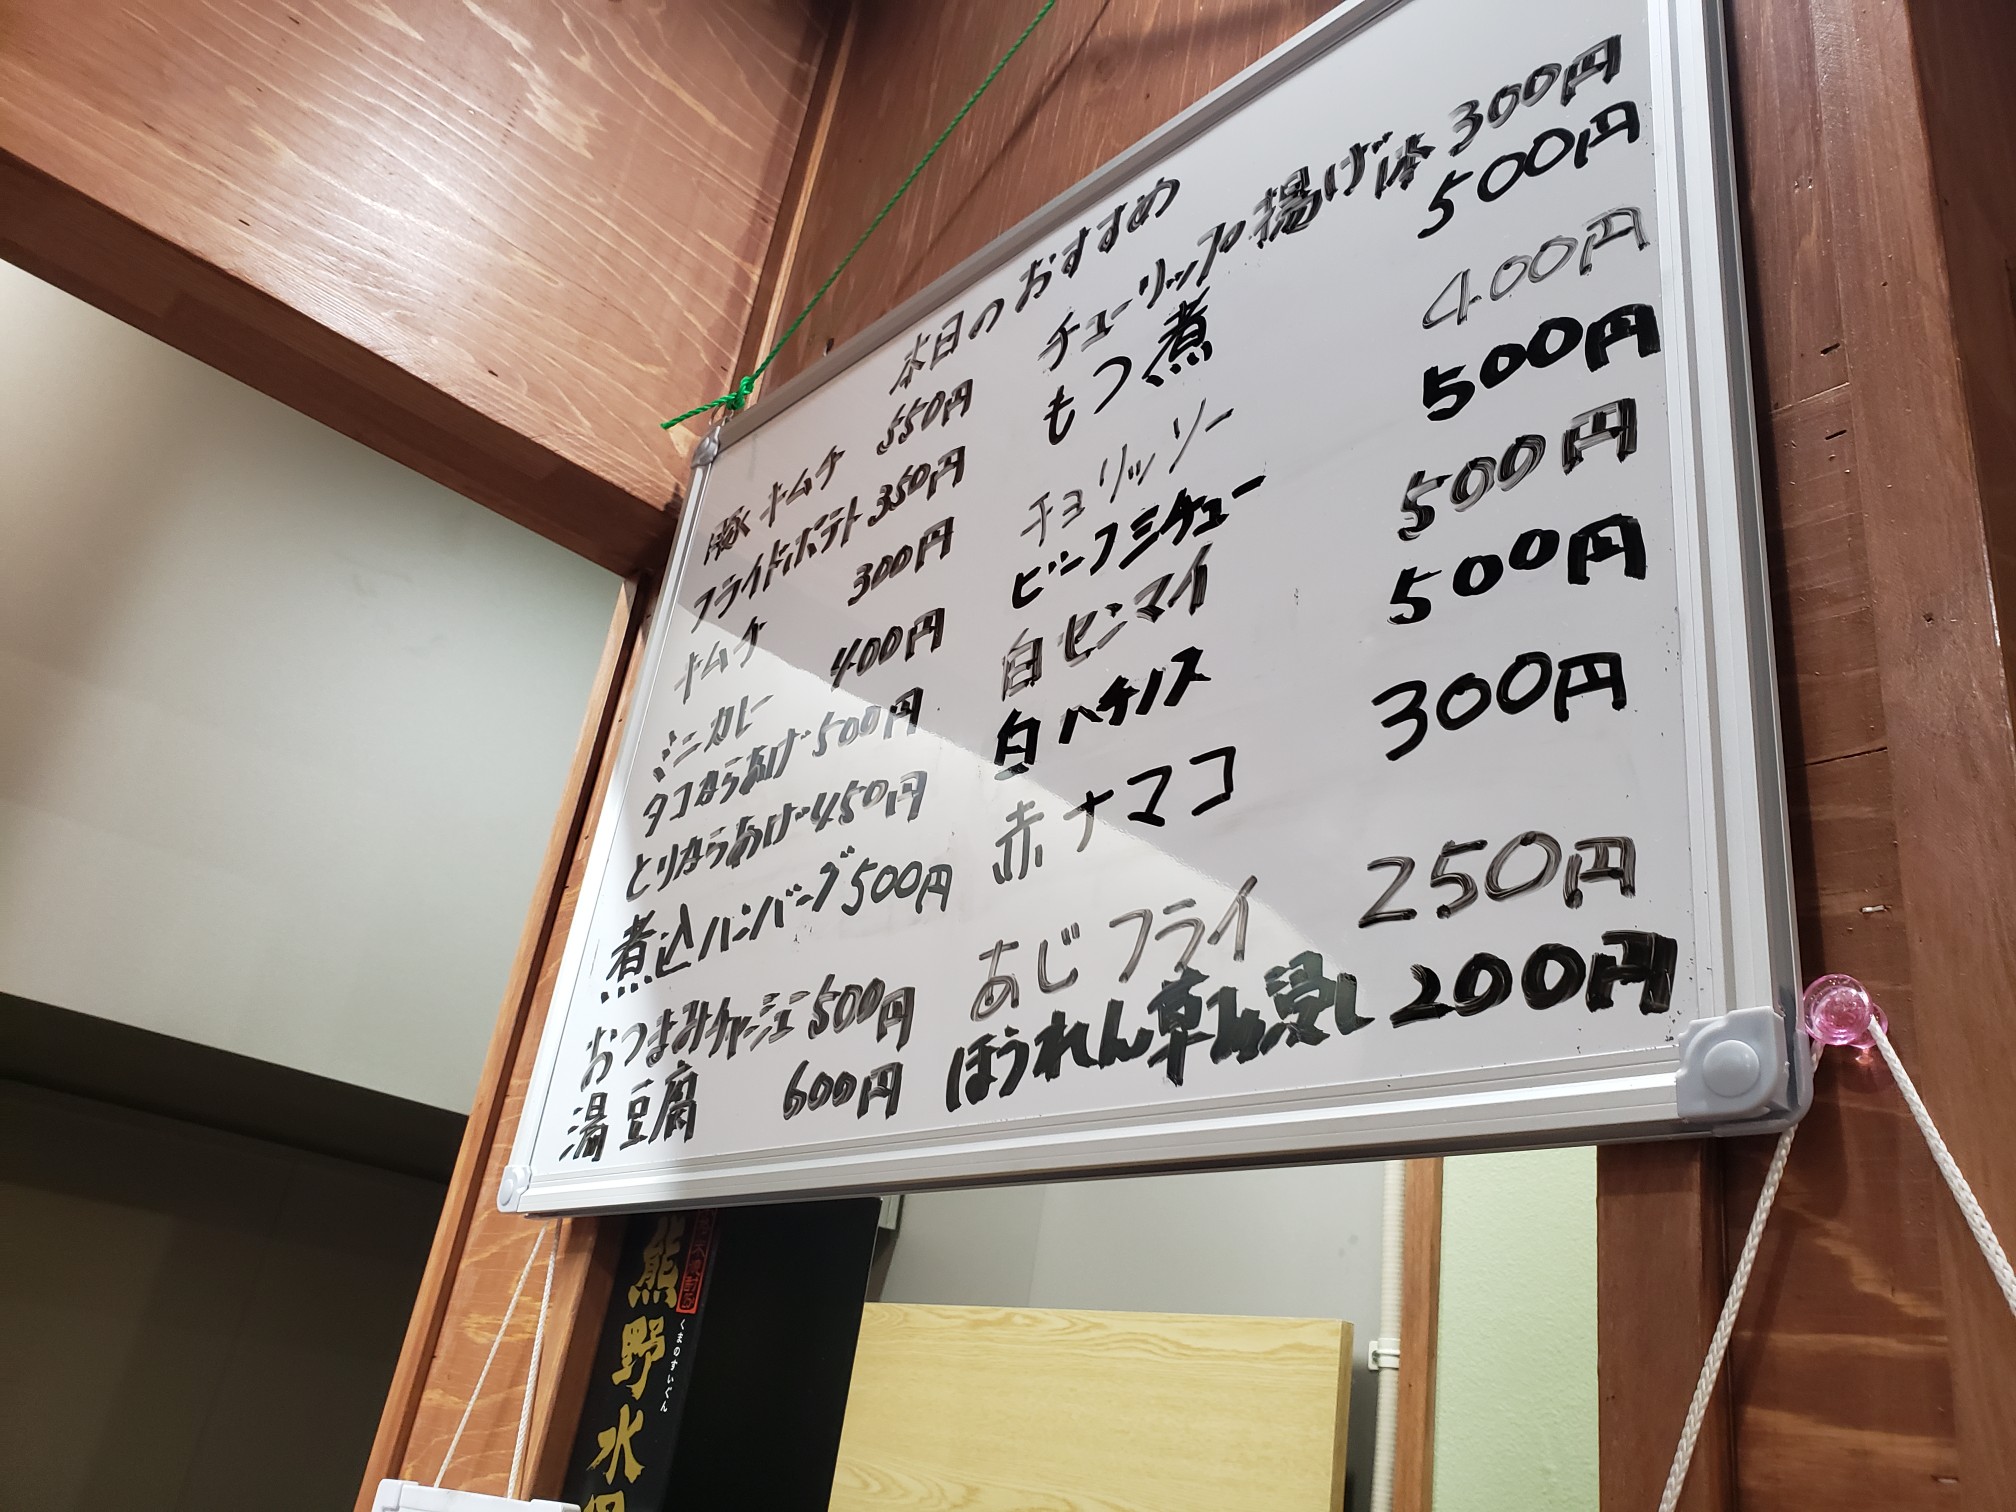 本日のおすすめ
豚キムチ 550円
フライドポテト 350円
キムチ 300円
ミニカレー 400円
タコからあげ 500円
とりからあげ 450円
煮込ハンバーグ 500円
おつまみチャーシュー 500円
湯豆腐 600円
チューリップ揚げ1本 300円
もつ煮 500円
チョリソー 400円
ビーフシチュー 500円
白センマイ 500円
白ハチノス 500円
赤ナマコ 300円
あじフライ 250円
ほうれん草お浸し 200円
熊野水
くまのすいぐん